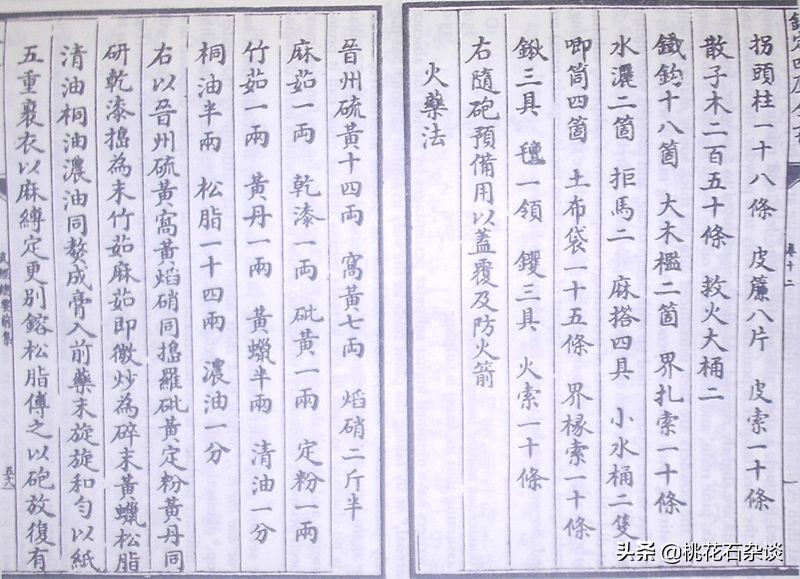 拐頭柱一十八條　皮簾八片　皮索一十條
散子木二百五十條　救火大桶二
鐵鈎十八箇　大木檻二箇　界扎索一十條
水濹二箇　拒馬二　麻搭四具　小水桶二隻
唧筒四箇　土布袋一十五條　界椽索一十條
鍬三具　氊一領　钁三具　火索一十條
右隨砲預備用以蓋覆及防火箭
火藥法
晉州硫黃十四兩　窩黃七兩　焰硝二斤半
麻茹一兩　乾漆一兩　砒黃一兩　定粉一兩
竹茹一兩　黃丹一兩　黃蠟半兩　清油一分
桐油半兩　松脂一十四兩　濃油一分
右以晉州硫黃窩黃焰硝同搗羅砒黃定粉黃丹同
研乾漆搗為末竹茹麻茹即微炒為碎末黃蠟松脂
清油桐油濃油同熬成膏入前藥末旋旋和勻以紙
五重裹衣以麻縛定更別鎔松脂傅之以砲放復有
卷十二
武經總要前集
头条 @桃花石杂谈